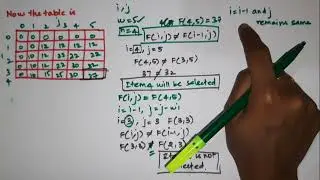 Now the table is
0 1 2 3 4 5
0 0 0 0 0 0 0
1 0 0 12 12 12 12
2 0 10 12 22 22 22
3 0 10 12 22 30 32
4 0 10 15 25 30 37
i, j
W=5
n=4
F(4,5) = 37
F(i,j) ≠ F(i-1,j)
i=4, j=5
F(4,5) ≠ F(3,5)
37 ≠ 32
Item 4 will be selected
F(i,j) =
i=i-1, j=j-wi
i=3, j=3 F(3,3)
F(i,j) ≠ F(i-1,j)
F(3,3) = F(2,3)
is not
selected.
i=i-1 and j
remains same